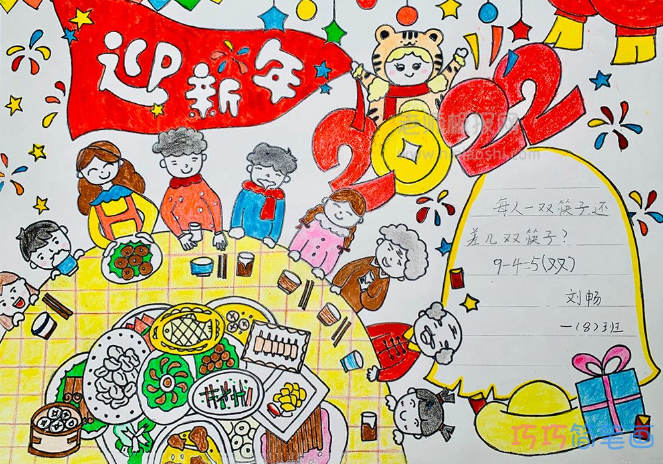 迎新年
2022
每人一双筷子还
差几双筷子？
9-4=5(双)
刘畅
一(8)班
巧巧简笔画